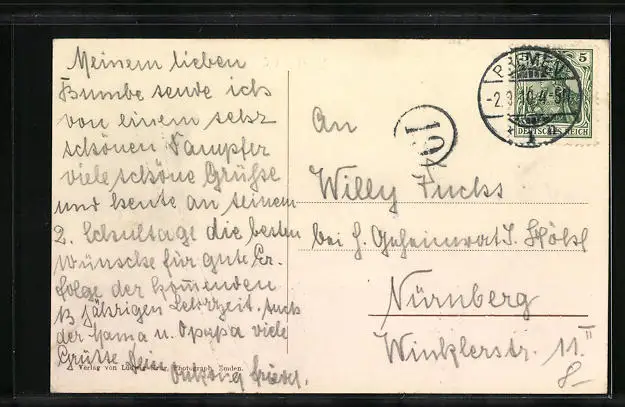 Meinem lieben
Bumbe sende ich
von einem sehr
schönen Dampfer
viele schöne Grüße
und heute an seinem
2. Schultage die besten
Wünsche für gute Er-
folge der kommenden
13 jährigen Lehrzeit. Auch
der Mama u. Opapa viele
Grüsse Dein
Verlag von Photograph, Emden.
5
-2.3. 4-5
DEUTSCHES REICH
19
An
Willy Fuchs
bei H. Geheimrat J.
Nürnberg
Winklerstr. 11 II